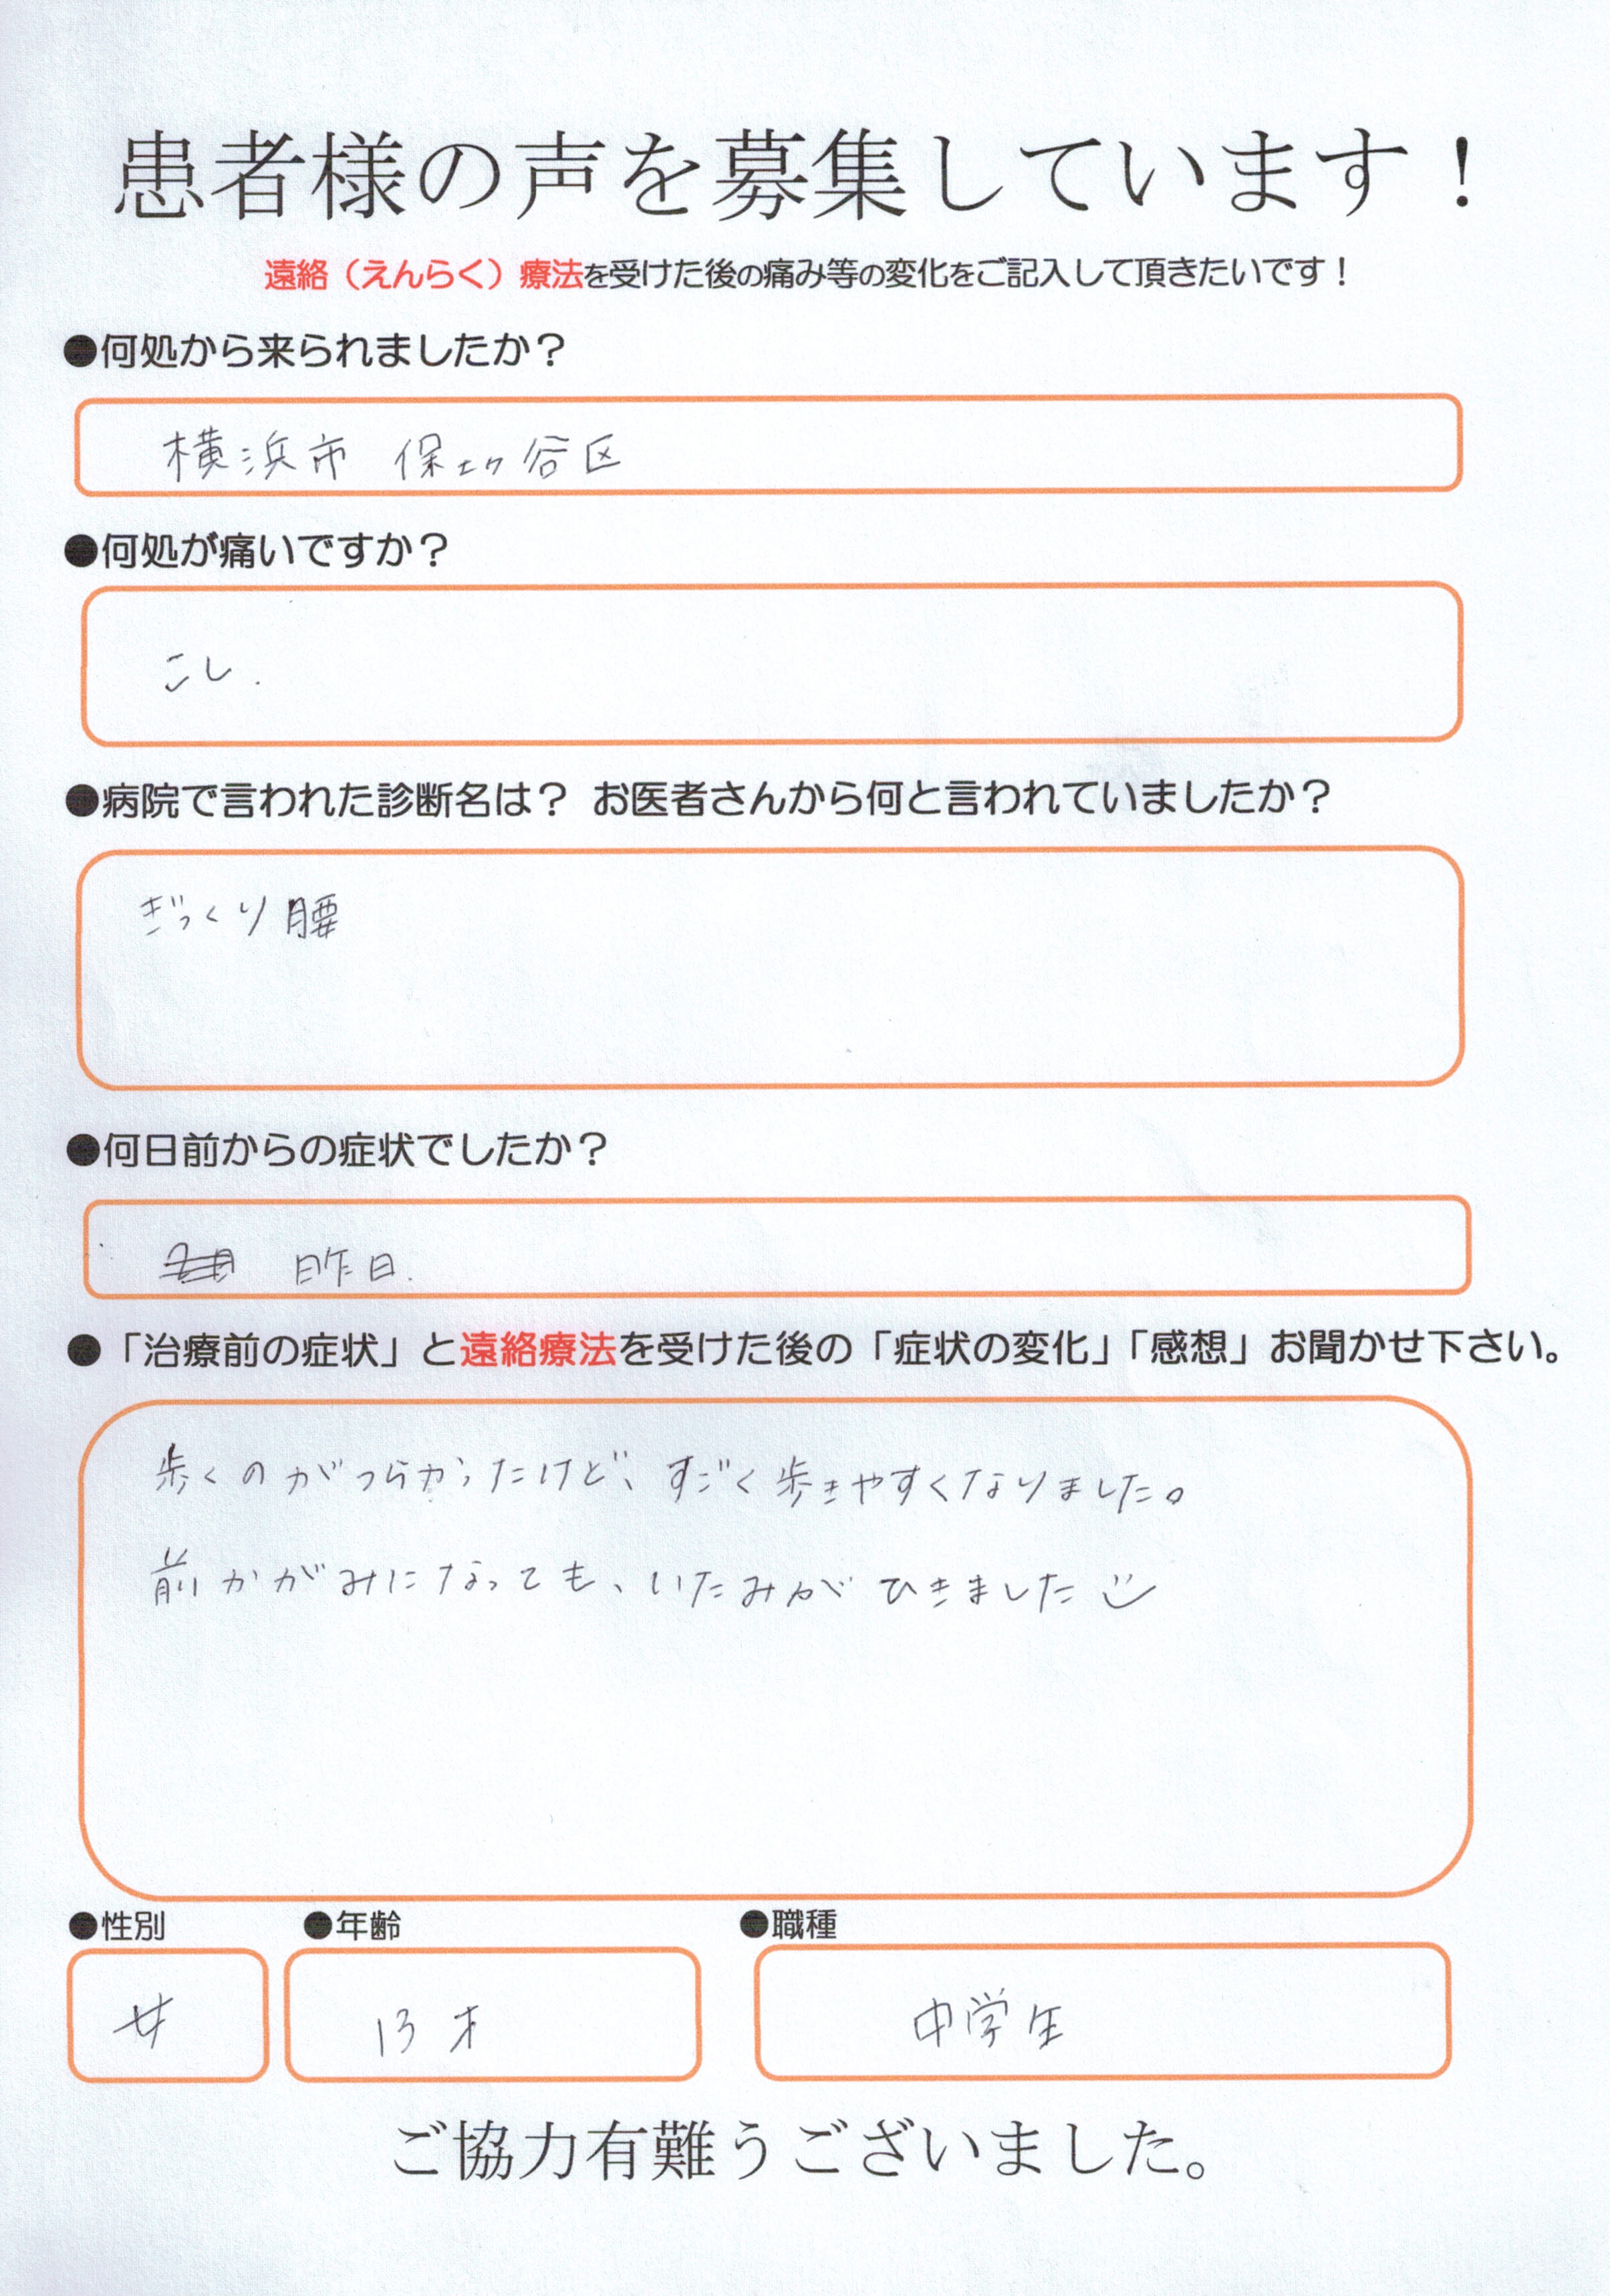 患者様の声を募集しています！
遠絡（えんらく）療法を受けた後の痛み等の変化をご記入して頂きたいです！
●何処から来られましたか？
横浜市 保土ヶ谷区
●何処が痛いですか？
こし.
●病院で言われた診断名は？ お医者さんから何と言われていましたか？
ぎっくり腰
●何日前からの症状でしたか？
昨日.
●「治療前の症状」と遠絡療法を受けた後の「症状の変化」「感想」お聞かせ下さい。
歩くのがつらかったけど、すごく歩きやすくなりました。
前かがみになっても、いたみがひきました
●性別 ●年齢 ●職種
女 13才 中学生
ご協力有難うございました。